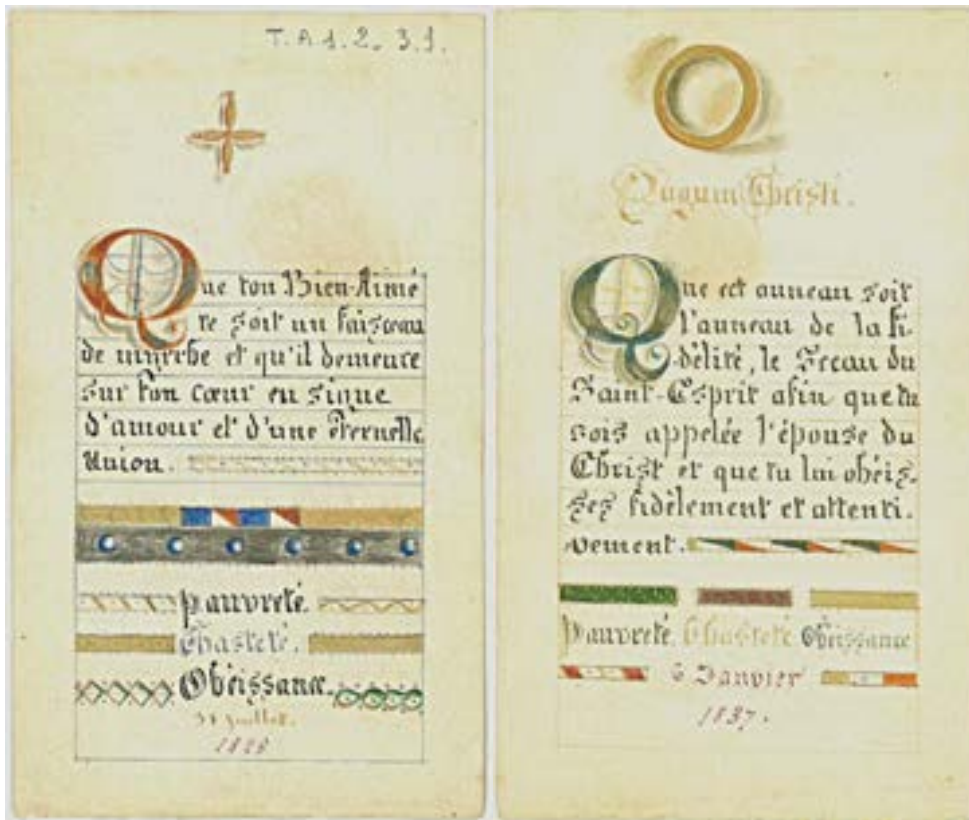 T.A 1. 2. 3.1.
Que ton Bien-Aimé
te soit un faisceau
de myrrhe et qu'il demeure
sur ton cœur en signe
d'amour et d'une éternelle
Union.
Pauvreté.
Chasteté.
Obéissance.
31 juillet.
Christi.
Que cet anneau soit
l'anneau de la fi-
délité, le Sceau du
Saint-Esprit afin que tu
sois appelée l'épouse du
Christ et que tu lui obéis-
ses fidèlement et attenti-
vement.
Pauvreté Chasteté Obéissance
6 Janvier
1837.